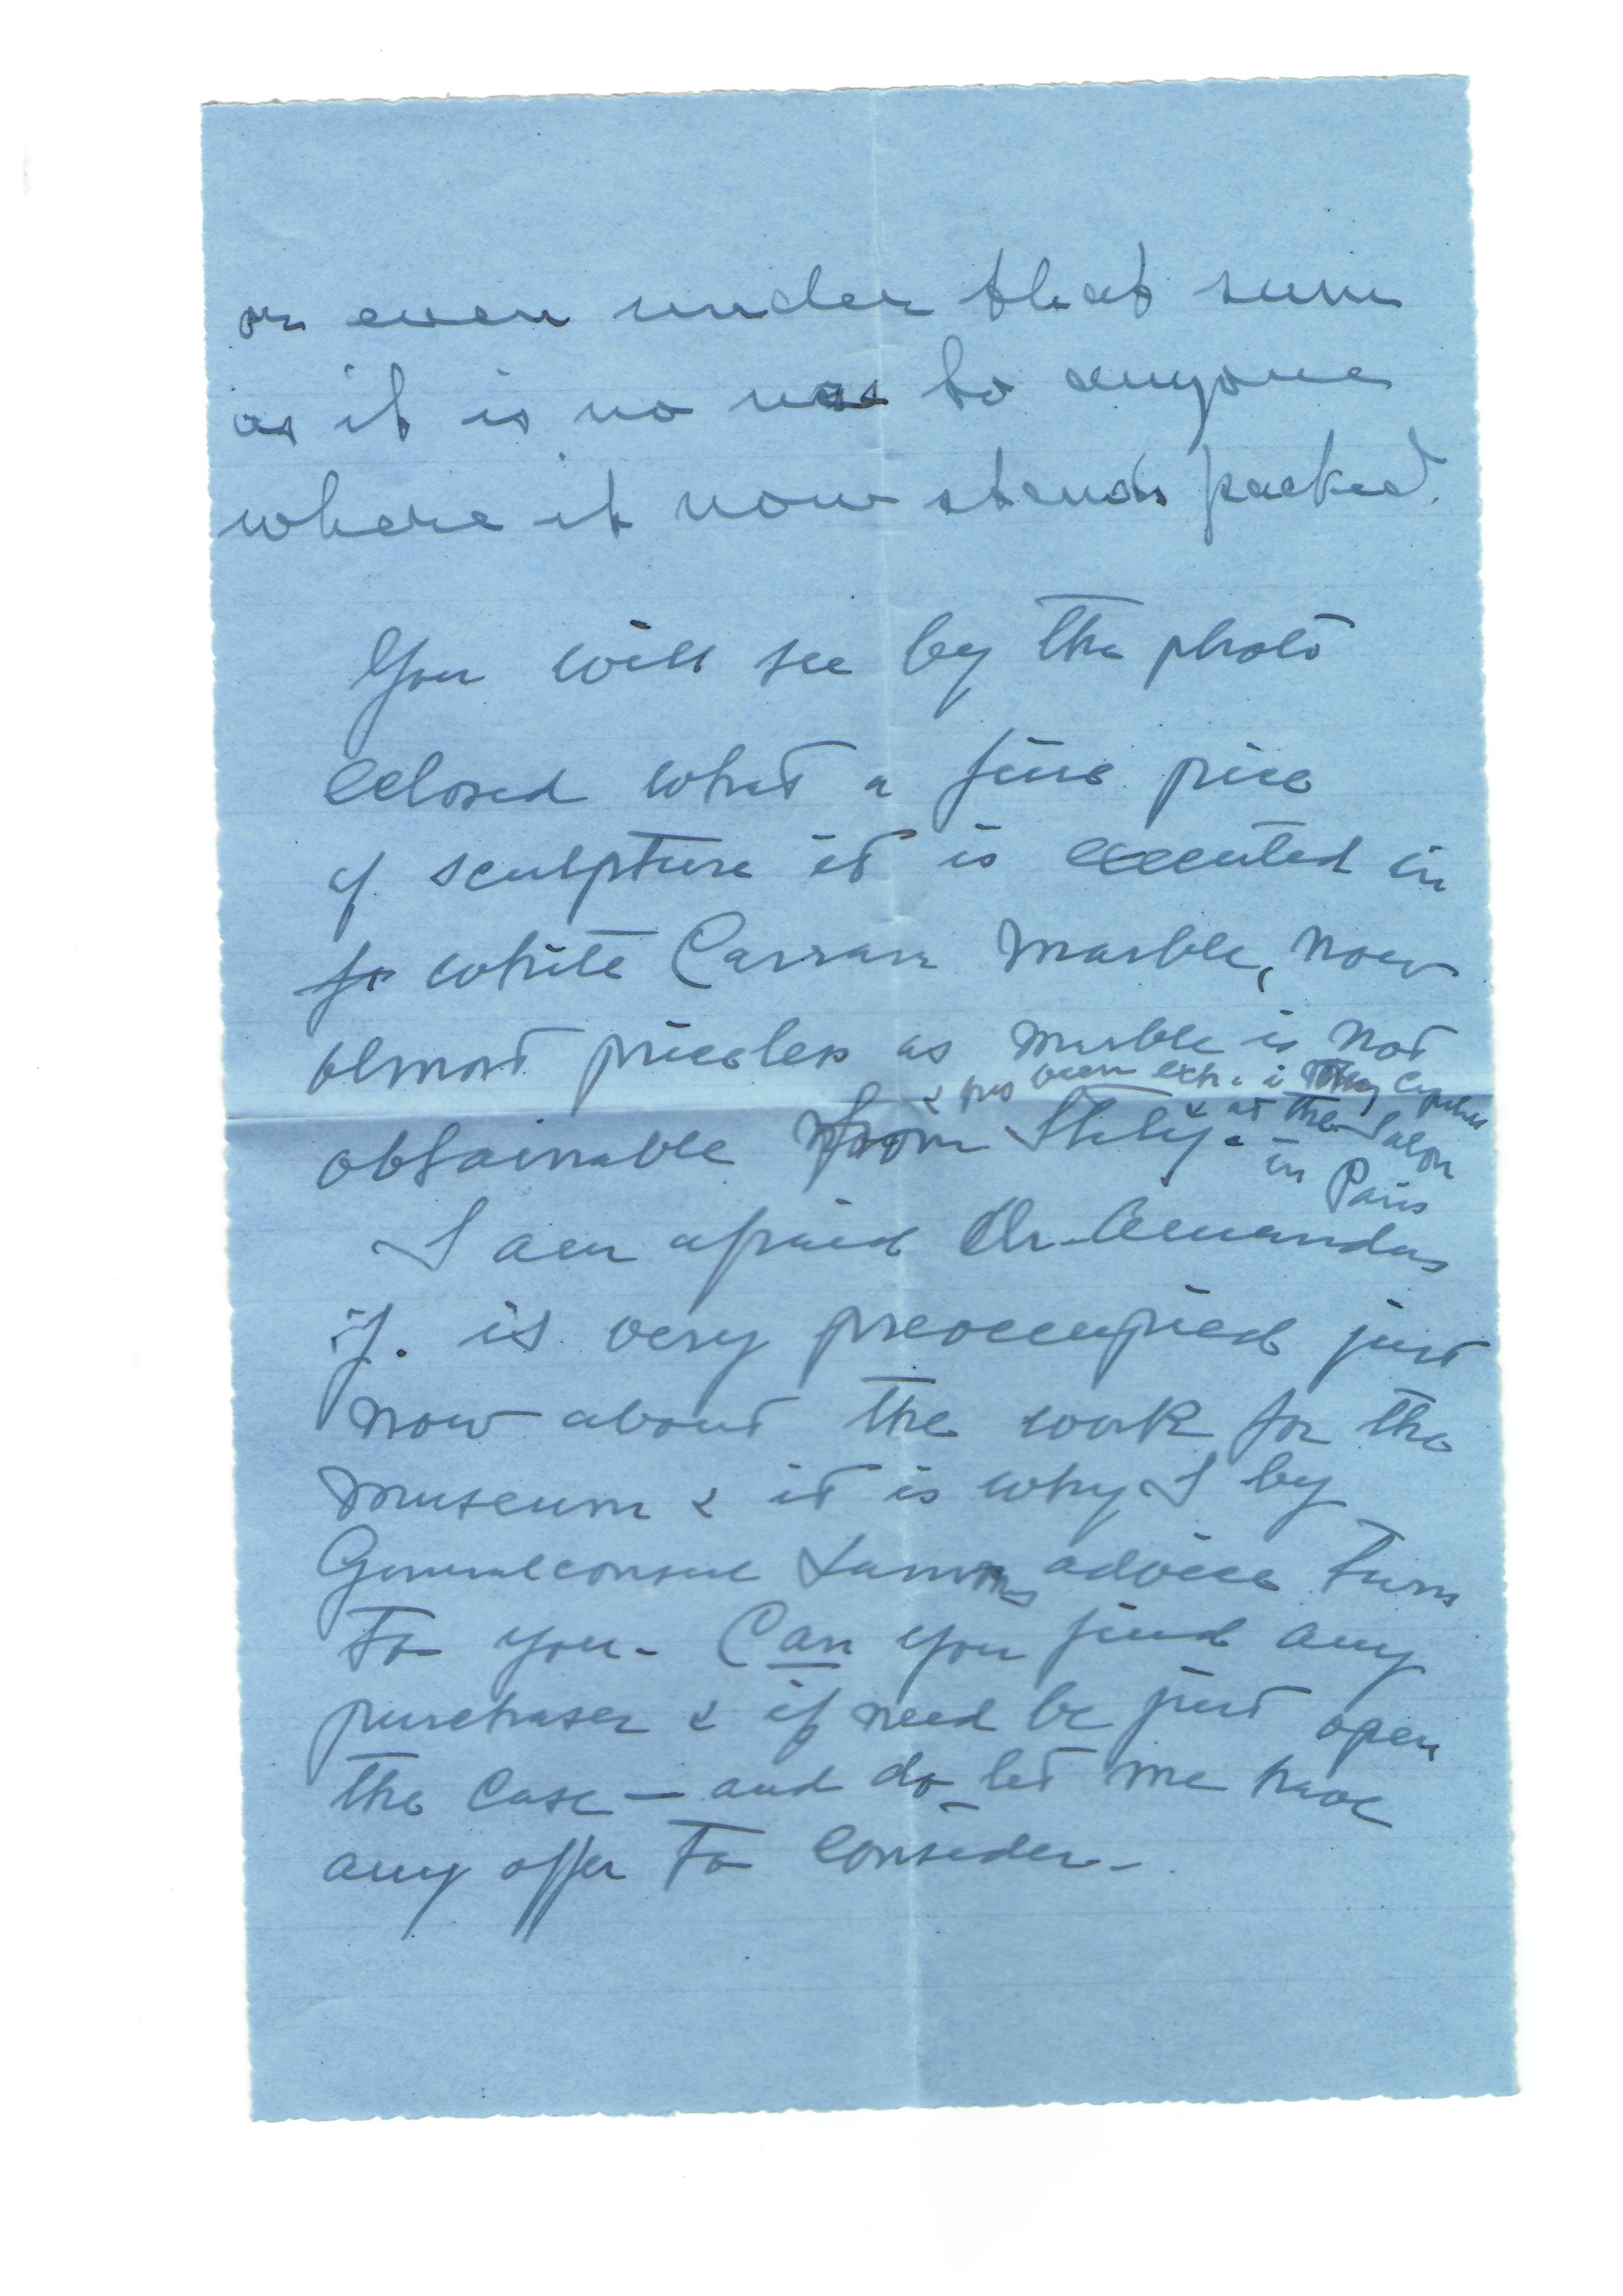 or even under that sum
as it is no use to anyone
where it now stands packed.
You will see by the photo
eclosed what a fine piece
of sculpture it is executed in
white Carrara Marble, now
almost priceless as marble is not
& has been exh. i
obtainable from Italy. & at the Salon
in Paris
I am afraid Dr.
is very preoccupied just
now about the work for the
museum & it is why I by
Generalconsul advice turn
to you - Can you find any
purchaser & if need be just open
the case - and do let me have
any offer to consider -